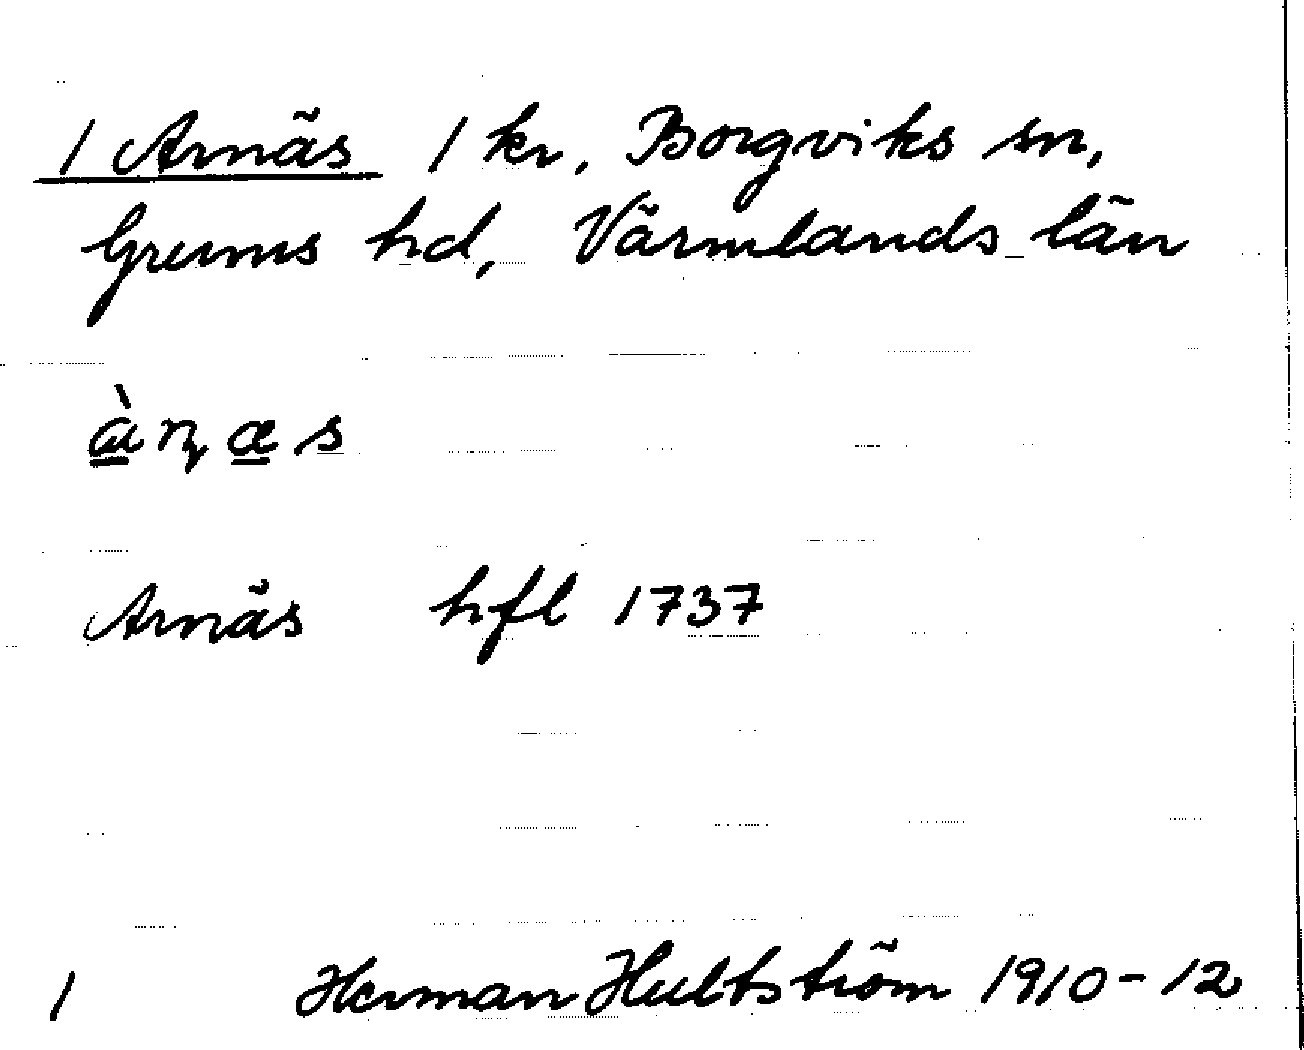 1 Arnäs 1 kr, Borgviks sn,
Grums hd, Värmlands län
ànæs
Arnäs hfl 1737
1 Herman Hultström 1910-12